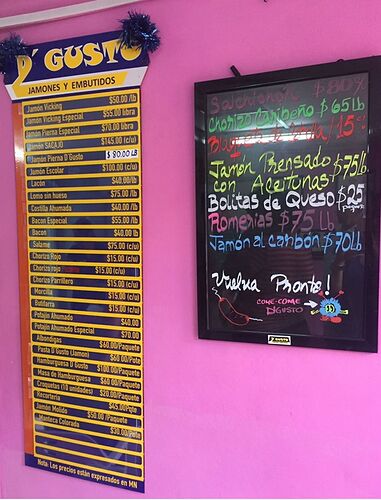 D' GUSTO
JAMONES Y EMBUTIDOS
Jamón Vicking $50.00 /lb
Jamón Vicking Especial $55.00 libra
Jamón Pierna Especial $70.00 libra
Jamón SACAJO $145.00 (c/u)
Jamón Pierna D'Gusto $ 80.00 LB
Jamón Escolar $100.00 (c/u)
Lacón $40.00/lb
Lomo sin hueso $75.00 /lb
Costilla Ahumada $40.00 /lb
Bacon Especial $55.00 /lb
Bacon $40.00 lb
Salame $75.00 (c/u)
Chorizo Rojo $15.00 (c/u)
Chorizo rojo $15.00 (c/u)
Chorizo Parrillero $15.00 (c/u)
Morcilla $15.00 (c/u)
Butifarra $15.00 (c/u)
Potajin Ahumado $40.00
Potajin Ahumado Especial $70.00
Albóndigas $60.00/Paquete
Pasta D'Gusto (Jamon) $60.00 /Pote
Hamburguesa D'Gusto $100.00/Paquete
Masa de Hamburguesa $60.00/Paquete
Croquetas (10 unidades) $20.00/Paquete
Recortería $45.00/Pqte
Jamón Molido $50.00 /Paquete
Manteca Colorada $30.00 Pote
Nota: Los precios están expresados en MN
Salchichón $80
Chorizo Caribeño $65 lb
15
Jamón Prensado $75 lb
con Aceitunas
Bolitas de Queso $25
Romerias $75 LB
Jamón al carbón $70 Lb
Vuelva Pronto!
COME-COME
D'GUSTO
D'GUSTO